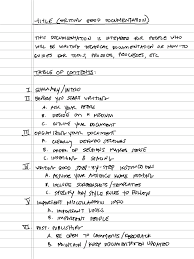 TITLE (WRITING GOOD DOCUMENTATION)
THIS DOCUMENTATION IS INTENDED FOR PEOPLE WHO
WILL BE WRITING TECHNICAL DOCUMENTATION OR HOW-TO
GUIDES FOR TOOLS, PROCESSES, ETC.
TABLE OF CONTENTS:
I. SUMMARY/INTRO
II. BEFORE YOU START WRITING
A. ASK YOUR PEERS
B. DECIDE ON A MEDIUM
C. OUTLINE YOUR DOCUMENT
III. ORGANIZING YOUR DOCUMENT
A. CLEARLY DEFINED SECTIONS
B. ORDER OF SECTIONS MAKES SENSE
C. &
IV. WRITING GOOD STEP-BY-STEP INSTRUCTIONS
A. ASSUME YOUR AUDIENCE KNOWS NOTHING
B. INCLUDE SCREENSHOTS/EXAMPLES
C. SPECIFY ANY STYLE RULES TO FOLLOW
V. IMPORTANT MISCELLANEOUS INFO
A. IMPORTANT LINKS
B. IMPORTANT PEOPLE
VI. POST-PUBLISHING
A. BE OPEN TO COMMENTS/FEEDBACK
B. MAINTAIN / KEEP DOCUMENTATION UPDATED